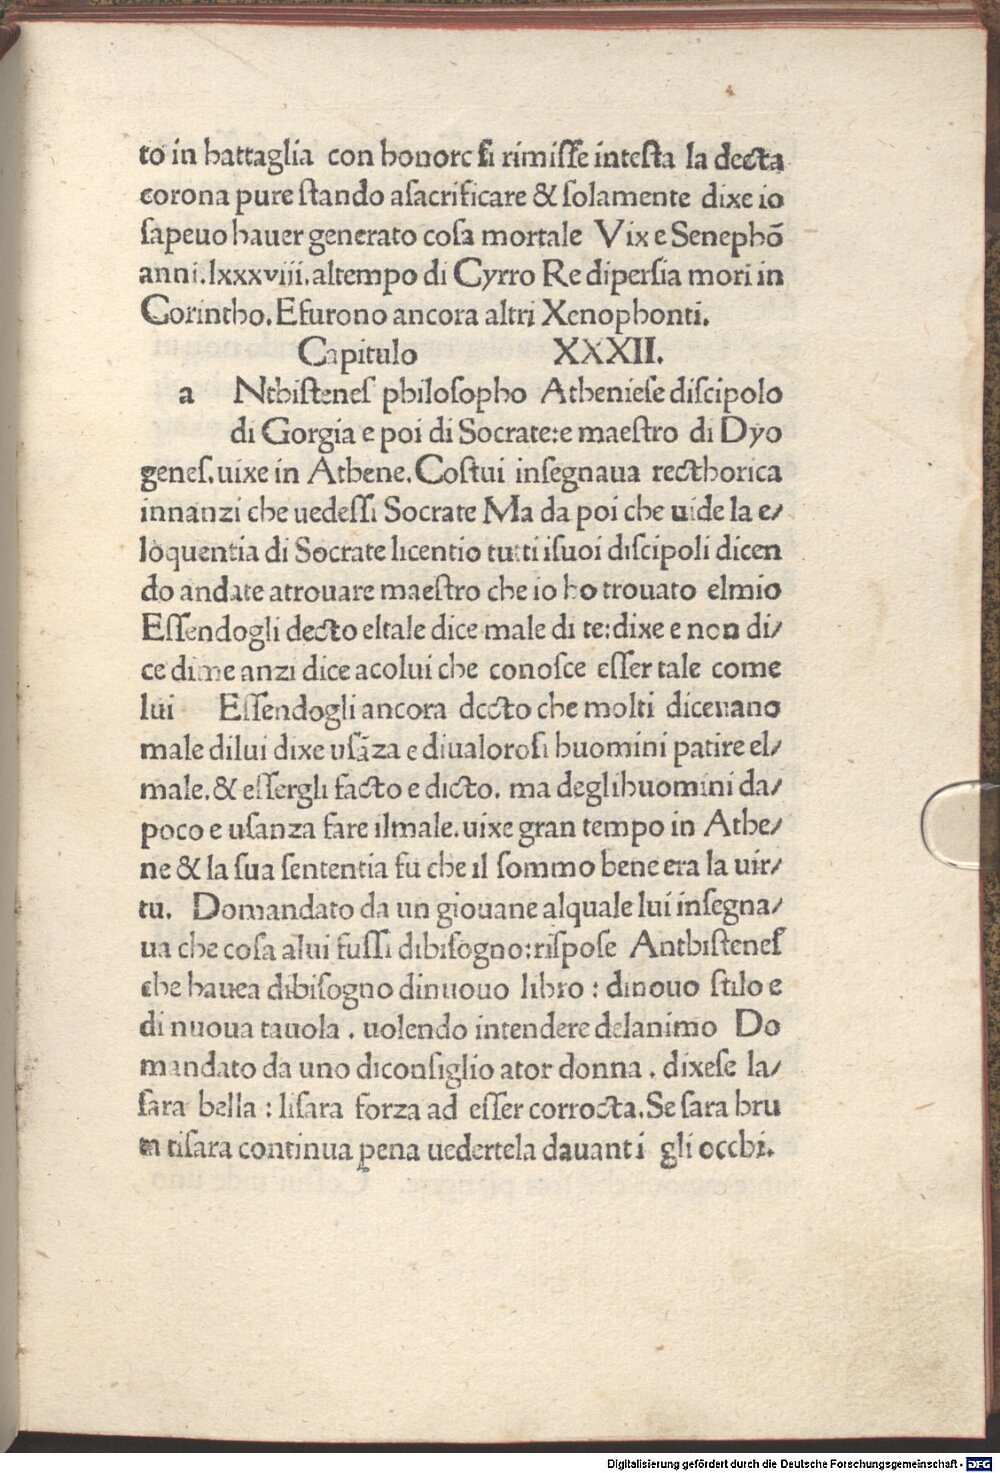 to in battaglia con honore ſi rimiſſe inteſta la decta
corona pure ſtando aſacrificare & ſolamente dixe io
ſapeuo hauer generato coſa mortale Vixe Senephō
anni.lxxxviii.altempo di Cyrro Re diperſia mori in
Corintho.Efurono ancora altri Xenophonti.
Capitulo XXXII.
a Nthiſteneſ philoſopho Athenieſe diſcipolo
di Gorgia e poi di Socrate:e maeſtro di Dyo
geneſ.uixe in Athene.Coſtui inſegnaua recthorica
innanzi che uedeſſi Socrate Ma da poi che uide la e/
loquentia di Socrate licentio tutti iſuoi diſcipoli dicen
do andate atrouare maeſtro che io ho trouato elmio
Eſſendogli decto eltale dice male di te:dixe e non di/
ce dime anzi dice acolui che conoſce eſſer tale come
lui Eſſendogli ancora decto che molti diceuano
male dilui dixe uſāza e diualoroſi huomini patire el/
male.& eſſergli facto e dicto. ma deglihuomini da/
poco e uſanza fare ilmale.uixe gran tempo in Athe/
ne & la ſua ſententia fu che il ſommo bene era la uir/
tu. Domandato da un giouane alquale lui inſegna/
ua che coſa alui fuſſi dibiſogno:riſpoſe Anthiſteneſ
che hauea dibiſogno dinuouo libro : dinouo ſtilo e
di nuoua tauola . uolendo intendere delanimo Do
mandato da uno diconſiglio ator donna . dixeſe la/
ſara bella : liſara forza ad eſſer corrocta.Se ſara bru
ta tiſara continua pena uedertela dauanti gli occhi.
Digitalisierung gefördert durch die Deutsche Forschungsgemeinschaft - DFG